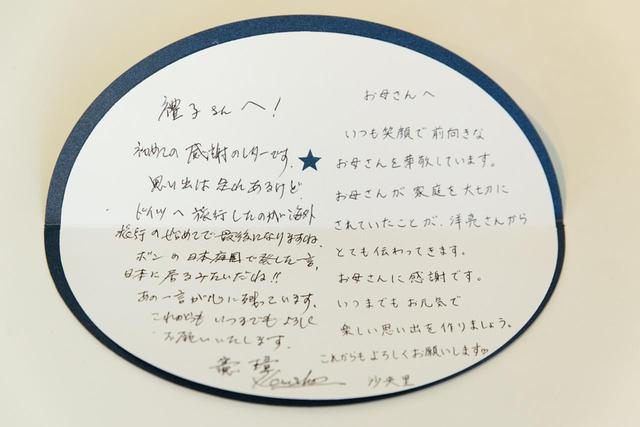 禮子さんへ!
初めての感謝のレターです。
思い出は数あるけど
ドイツへ旅行したのが海外
旅行の始めてで最後になりますね
ボンの日本庭園で発した一言、
日本に居るみたいだね!!
あの一言が心に残っています。
これからも いつまでも よろしく
お願いいたします。
お母さんへ
いつも笑顔で前向きな
お母さんを尊敬しています。
お母さんが家庭を大切に
されていたことが、洋亮さんから
とても伝わってきます。
お母さんに感謝です。
いつまでもお元気で
楽しい思い出を作りましょう。
これからもよろしくお願いします♡
沙央里